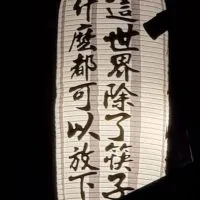 這世界除了筷子
什麼都可以放下